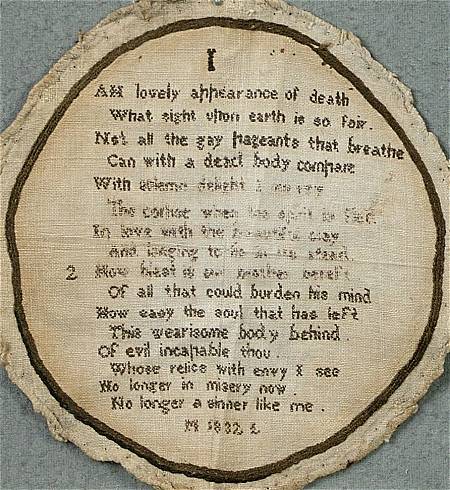 I
AH lovely appearance of death
What sight upon earth is so fair.
Not all the gay pageants that breathe
Can with a dead body compare
With solemn delight I survey
The corpse when the spirit is fled.
In love with the beautiful clay
And longing to lie in its stead.
2 How blest is our brother bereft
Of all that could burden his mind
How easy the soul that has left
This wearisome body behind.
Of evil incapable thou.
Whose relics with envy I see
No longer in misery now.
No longer a sinner like me.
M 1832